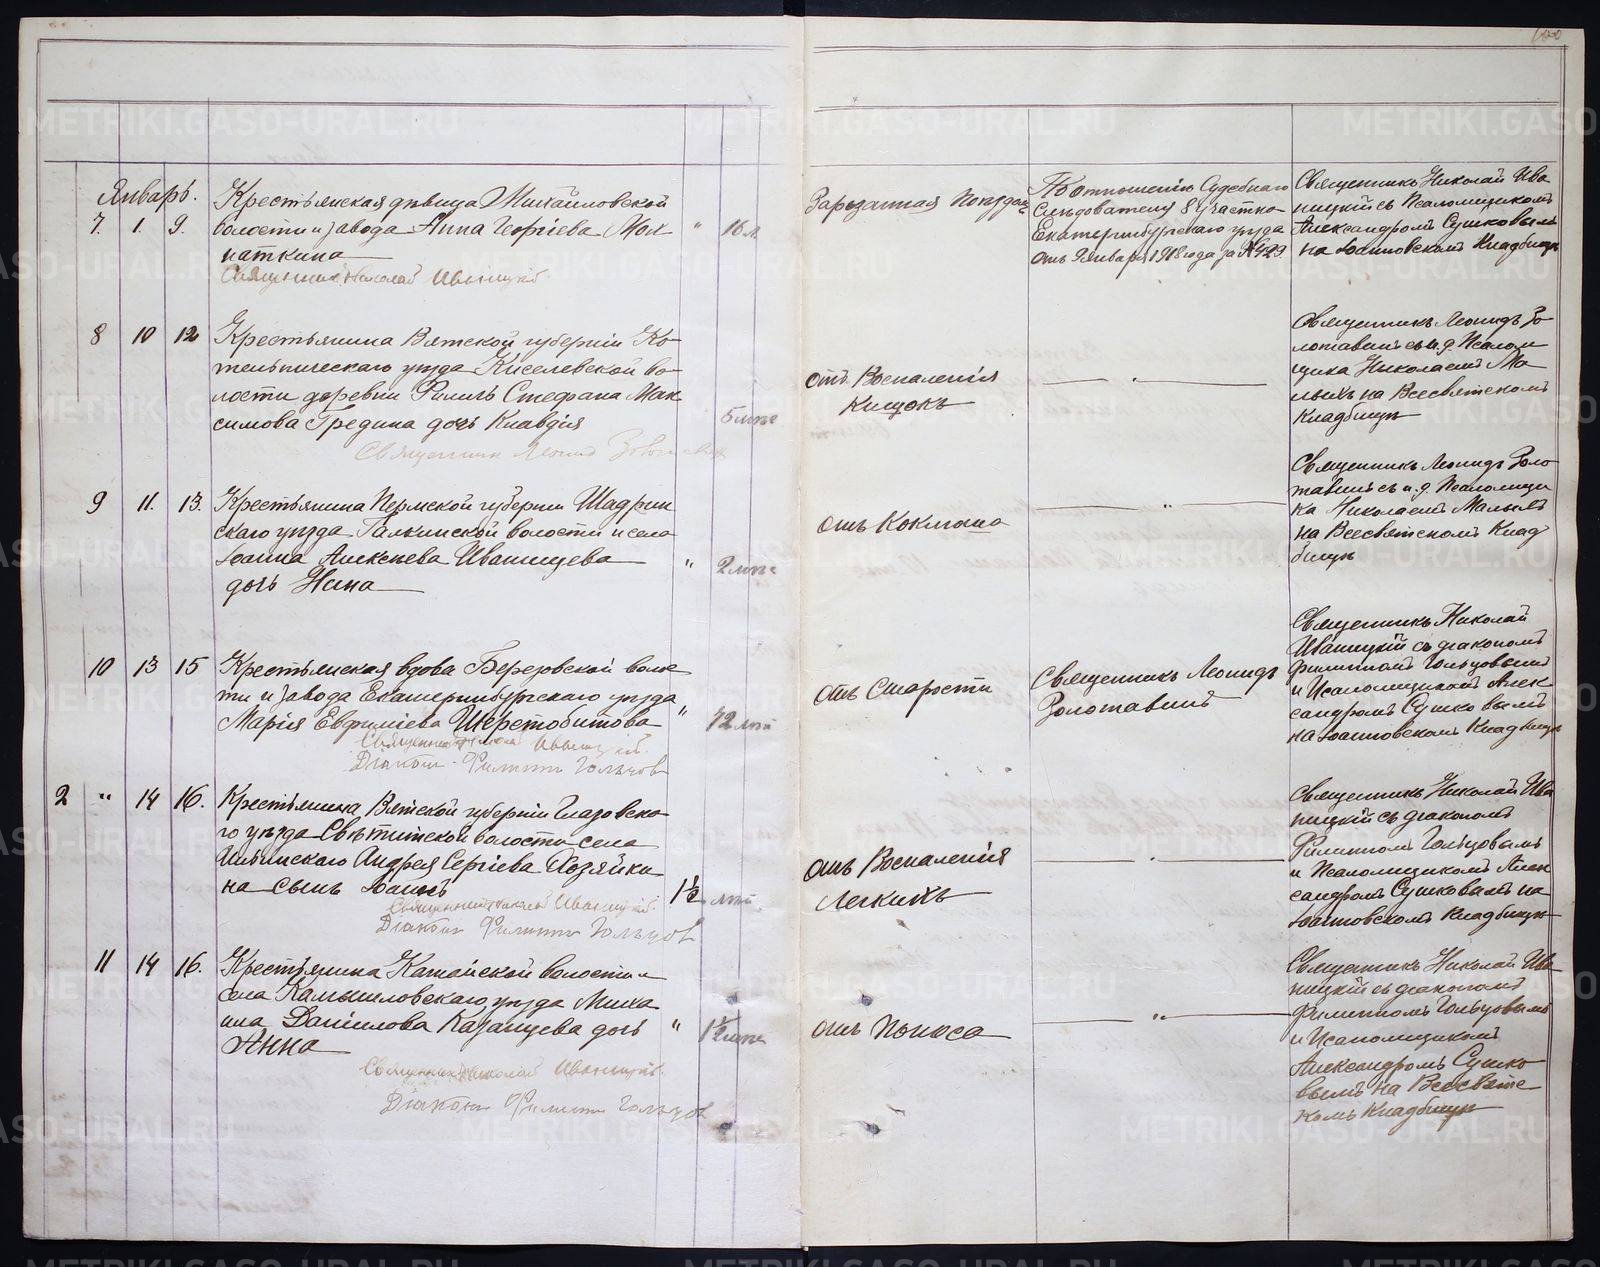 Январь.
7. 1. 9. Крестьянская дѣвица Михайловской
волости и завода Анна Георгіева Мох
наткина " 16 л.
Священник Николай Иваницкій.
Зарѣзанная
По отношенію Судебнаго
Слѣдователя 8 участка
Екатеринбургскаго уѣзда
отъ 9 января 1918 года за № 29
Священникъ Николай Ива
ницкій съ Псаломщикомъ
Александромъ Сушковымъ
на Іоанновскомъ Кладбищѣ
8 10 12 Крестьянина Вятской губерніи Ко
тельническаго уѣзда Киселевской во
лости деревни Стефана Мак
симова Гредина дочь Клавдія 5 лѣтъ
Священник Леонид Золотавин
отъ Воспаленія
Кишокъ
— " —
Священникъ Леонидъ Зо
лотавинъ съ и. д. Псалом
щика Николаемъ Ма
лыхъ на Всесвятскомъ
Кладбищѣ
9 11. 13. Крестьянина Пермской губерніи Шадрин
скаго уѣзда Галкинской волости и села
Іоанна Алексѣева Иванищева
дочь Нина " 2 лѣтъ
отъ Коклюша
— " —
Священникъ Леонидъ Золо
тавинъ съ и. д. Псаломщи
ка Николаемъ Малыхъ
на Всесвятскомъ Клад
бищѣ
10 13 15 Крестьянская вдова Березовской волос
ти и завода Екатеринбургскаго уѣзда
Марія Евфиміева Шерстобитова " 72 лѣт
Священник Николай Иваницкій.
Діакон Филипп Гольцов
отъ Старости
Священникъ Леонидъ
Золотавинъ
Священникъ Николай
Иваницкій съ діакономъ
Филиппомъ Гольцовымъ
и Псаломщикомъ Алек
сандромъ Сушковымъ
на Іоанновскомъ Кладбищѣ
2 " 14 16. Крестьянина Вятской губерніи Глазовска
го уѣзда волости села
Андрея Сергіева Хозяйки
на сынъ Іоаннъ 1½ лѣт.
Священник Николай Иваницкій.
Діакон Филипп Гольцов
отъ Воспаленія
Легкихъ
— " —
Священникъ Николай Ива
ницкій съ діакономъ
Филиппомъ Гольцовымъ
и Псаломщикомъ Алек
сандромъ Сушковымъ на
Іоанновскомъ Кладбищѣ
11 14 16. Крестьянина Катайской волости и
села Камышловскаго уѣзда Миха
ила Даніилова Казанцева дочь
Анна " 1½ лѣтъ
Священник Николай Иваницкій.
Діакон Филипп Гольцов
отъ Поноса
— " —
Священникъ Николай Ива
ницкій съ діакономъ
Филиппомъ Гольцовымъ
и Псаломщикомъ
Александромъ Сушко
вымъ на Всесвятс
комъ Кладбищѣ
METRIKI.GASO-URAL.RU